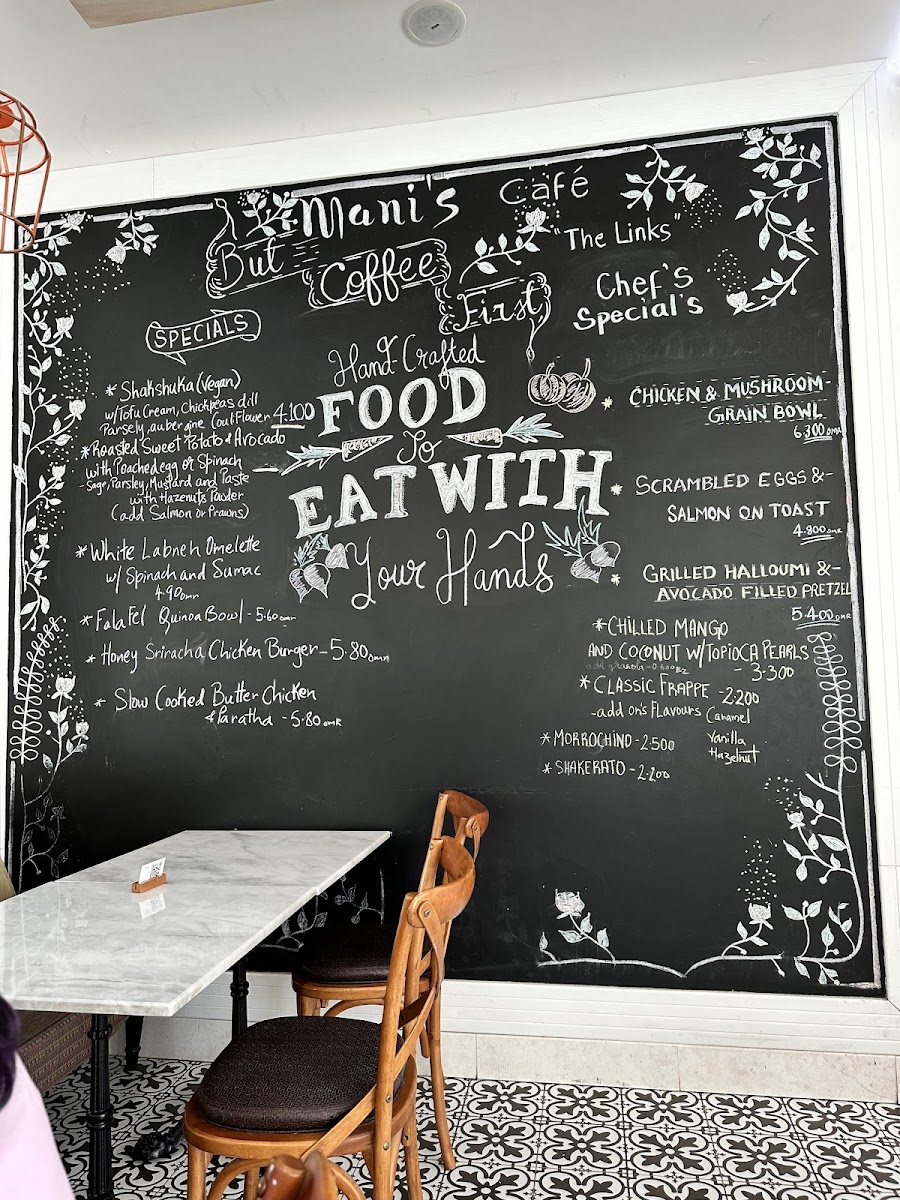 Mani's Café
But
Coffee
First
"The Links"
Chef's
Special's
SPECIALS
* Shakshuka (vegan)
w/Tofu Cream, Chickpeas, dill
Parsely, auber gine Cauliflower 4.100
* Roasted Sweet Potato & Avocado
with Poached egg or Spinach
- Sage, Parsley, Mustard and Paste
with Hazenuts Powder
(add Salmon or Prawns)
* White Labneh Omelette
w/ Spinach and Sumac
4.90 OMR
* Falafel Quinoa Bowl - 5.60 OMR
* Honey Sriracha Chicken Burger - 5.80 OMR
* Slow Cooked Butter Chicken
& Paratha - 5.80 OMR
Hand Crafted
FOOD
To
EAT WITH
Your Hands
* CHICKEN & MUSHROOM -
GRAIN BOWL
6.300 OMR
* SCRAMBLED EGGS & -
SALMON ON TOAST
4.800 OMR
* GRILLED HALLOUMI & -
AVOCADO FILLED PRETZEL
5.400 OMR
* CHILLED MANGO
AND COCONUT W/ TOPIOCA PEARLS
add granola - 0.600 BZ
- 3.300
* CLASSIC FRAPPE - 2.200
- add on's FLAVOURS Caramel
Vanilla
Hazelnut
* MORROCHINO - 2.500
* SHAKERATO - 2.200